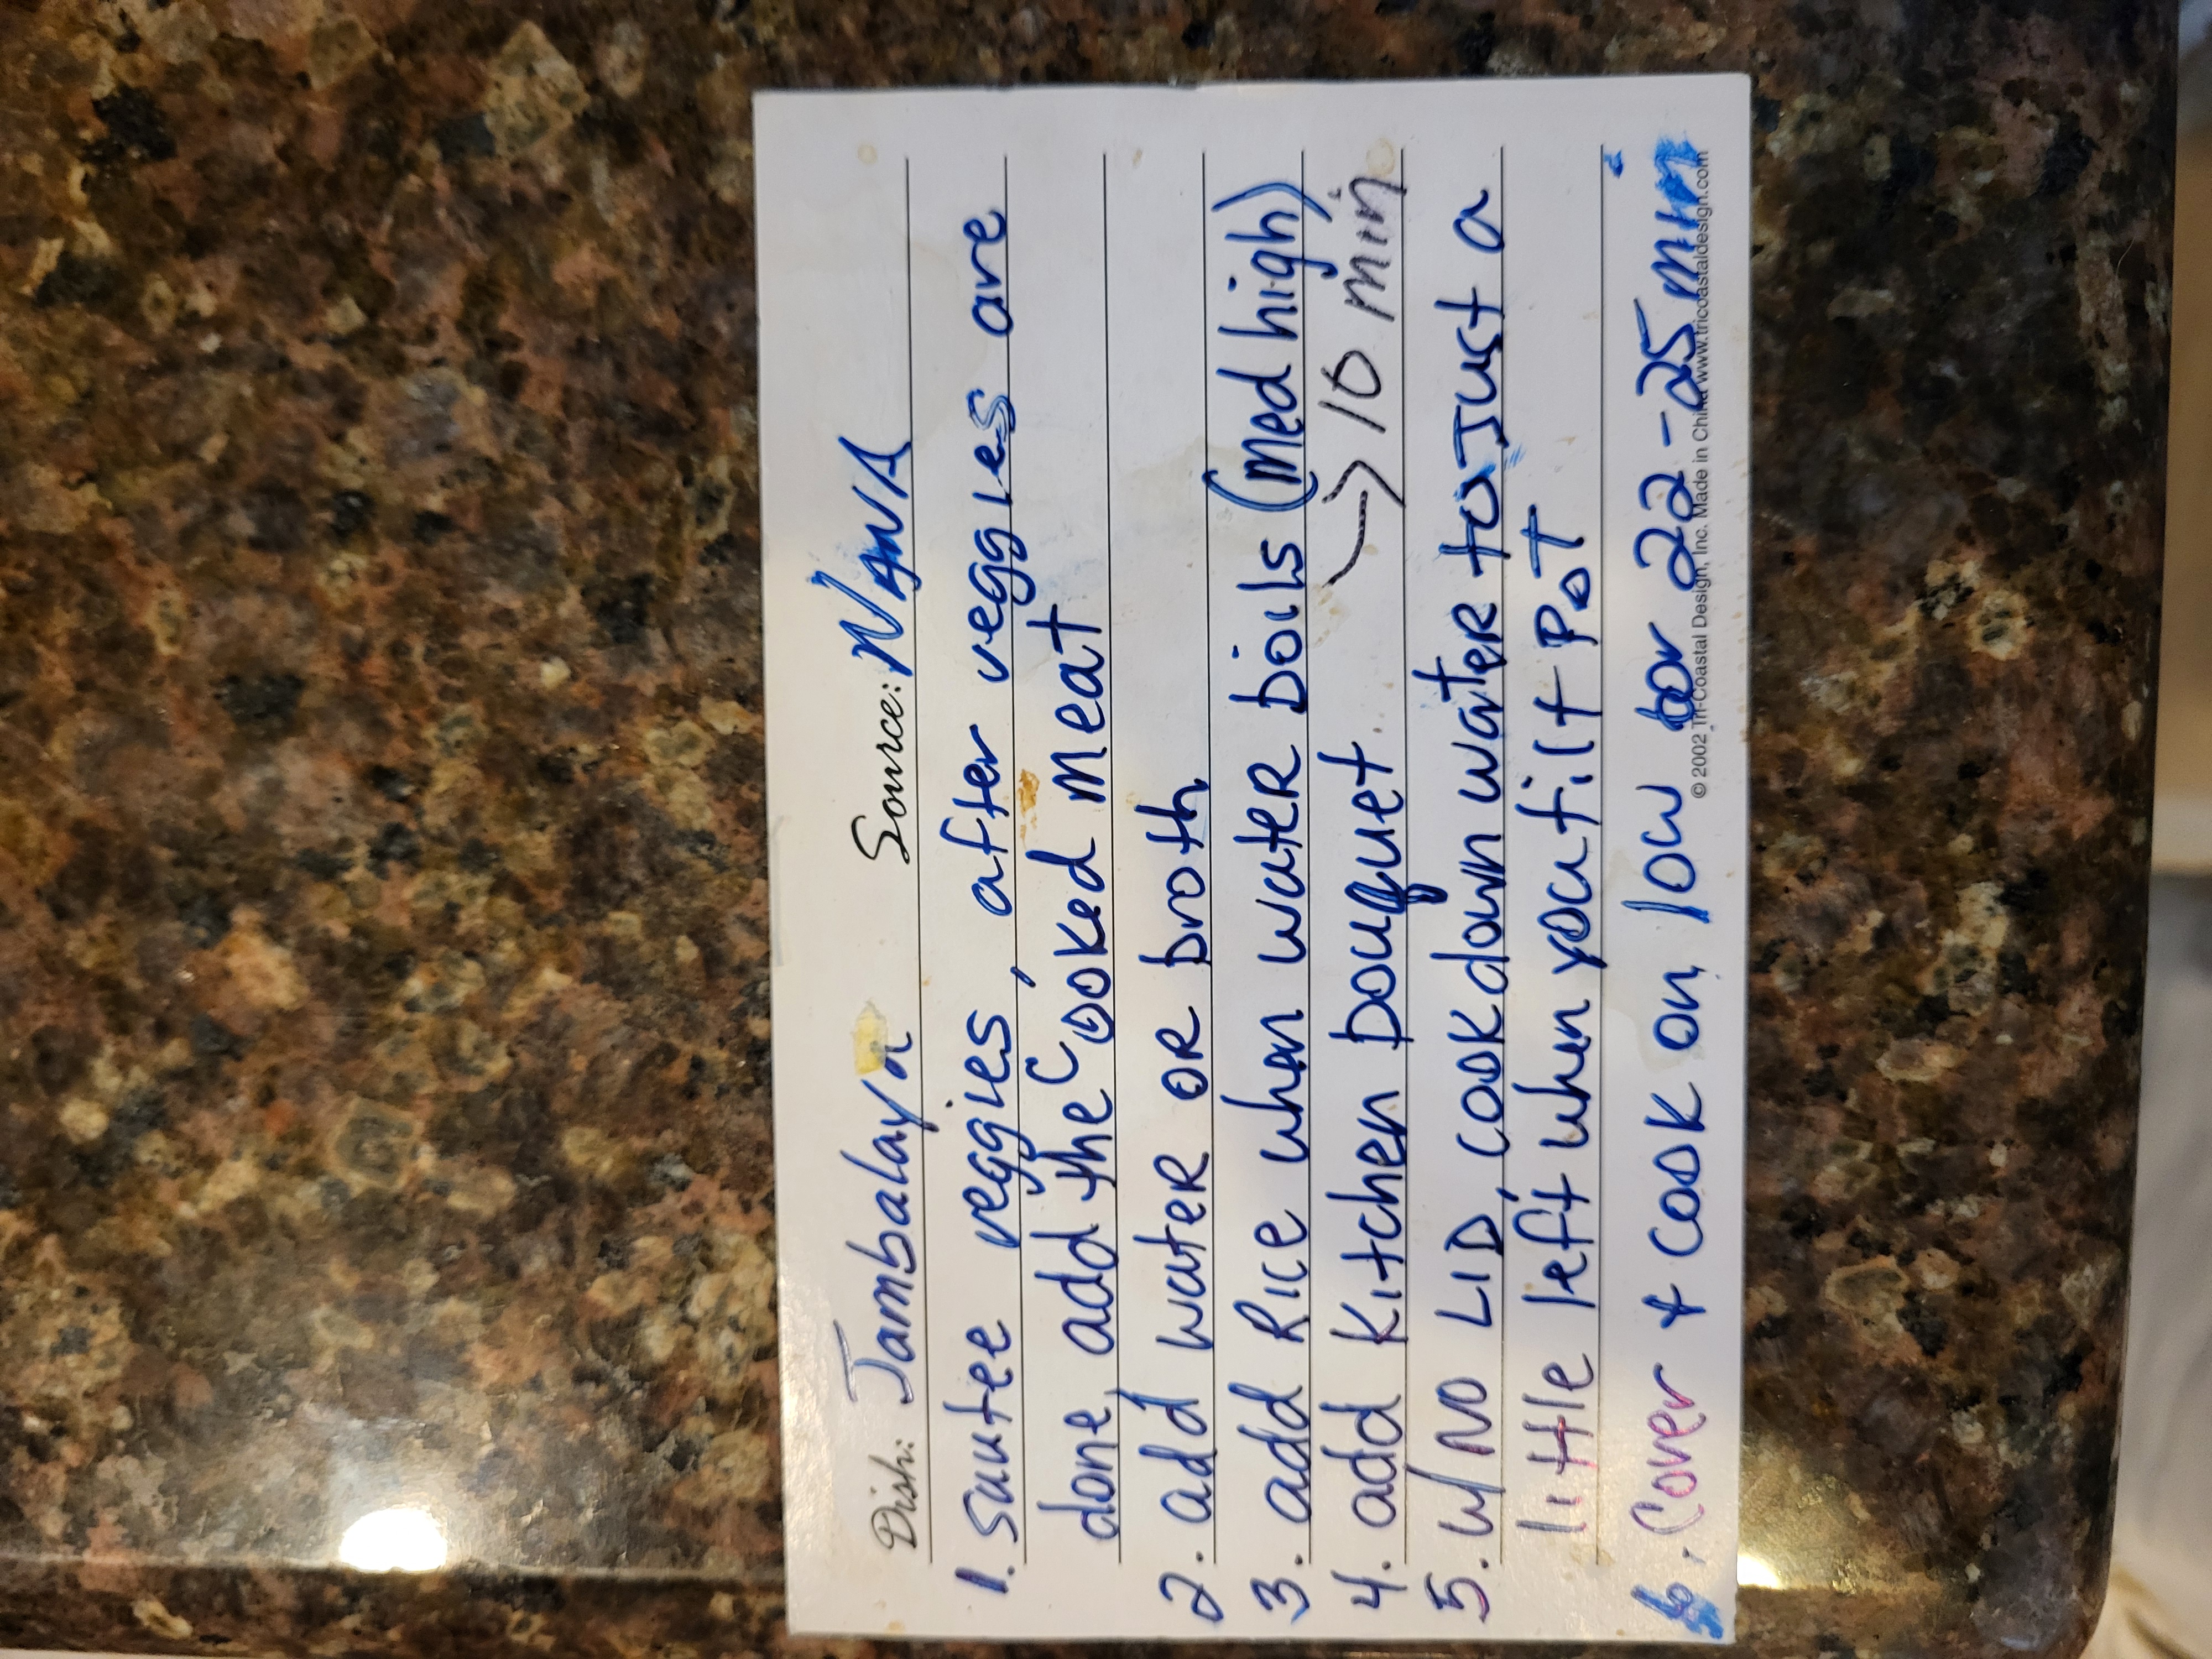 Dish: Jambalaya Source: NANA
1. Sautee veggies, after veggies are
done, add the cooked meat
2. add water OR broth
3. add Rice when water boils (Med high)
4. add Kitchen bouquet → 10 min
5. w/ NO LID, cook down water to Just a
little left when you tilt Pot
6. Cover & cook on low for 22-25 min
© 2002 Tri-Coastal Design, Inc. Made in China www.tricoastaldesign.com